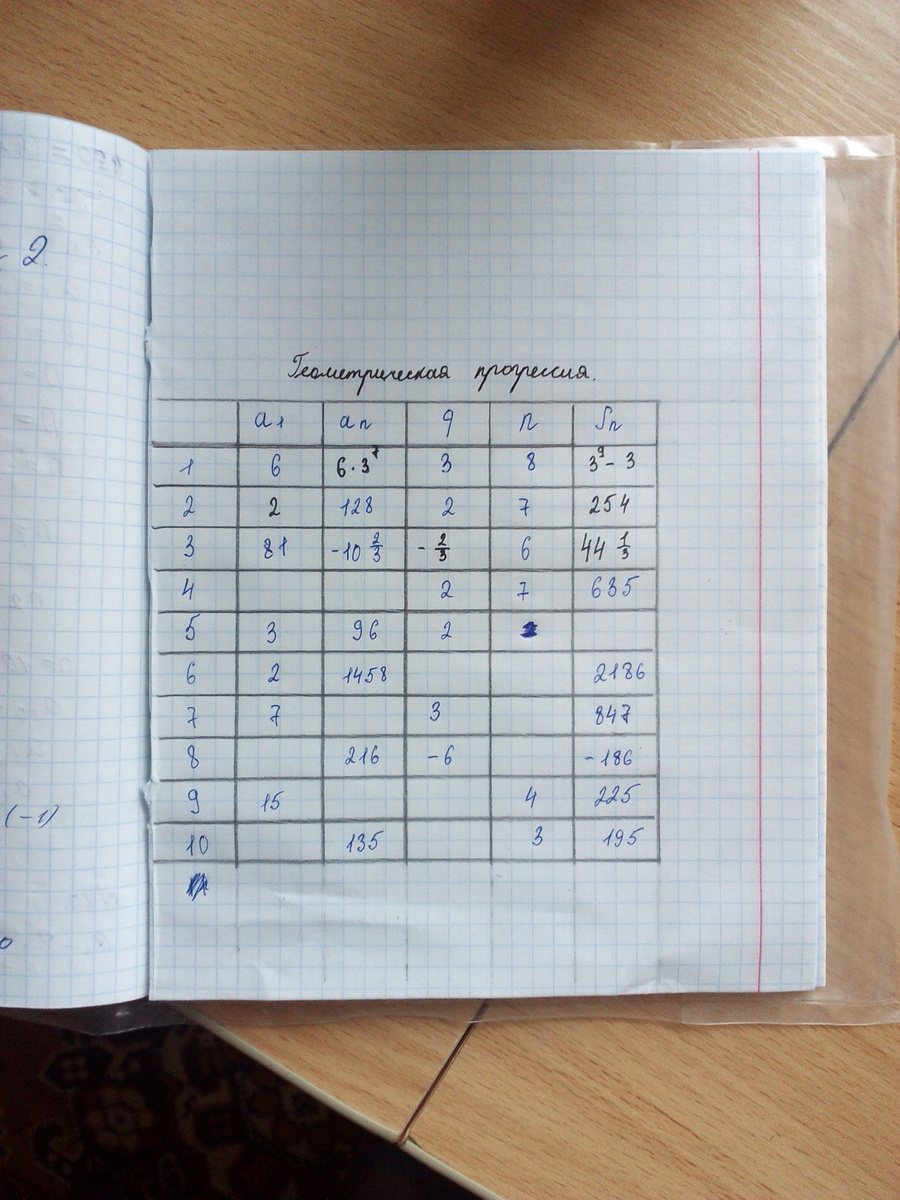 - 2.
(-1)
Геометрическая прогрессия.
a1 an q n Sn
1 6 6·3⁷ 3 8 3⁹-3
2 2 128 2 7 254
3 81 -10 2/3 -2/3 6 44 1/3
4 2 7 635
5 3 96 2
6 2 1458 2186
7 7 3 847
8 216 -6 -186
9 15 4 225
10 135 3 195